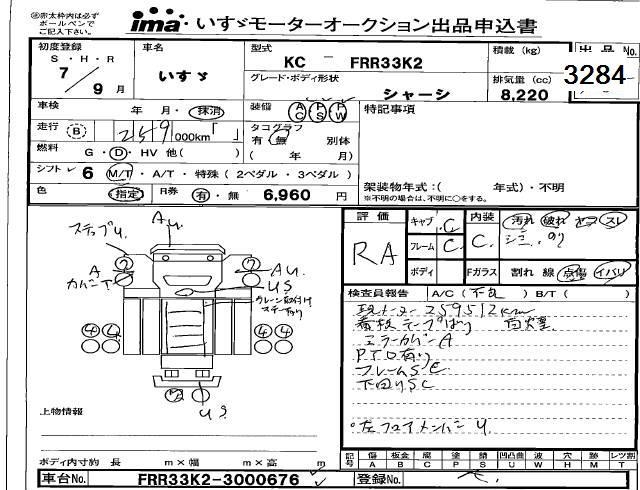 ㊟赤太枠内は必ず
ボールペンで
ご記入下さい。
ima いすゞモーターオークション出品申込書
初度登録 車名 型式 積載 (kg) 出品No.
S・H・R
7 / 9 月
いすゞ
KC － FRR33K2
グレード・ボディ形状 シャーシ
排気量 (cc) 8,220
3284
車検 年 月・抹消
装備 AC PS PW
特記事項
走行 B 259 000km「 」
タコグラフ 有・無 別体
( 年 月)
燃料 G・D・HV 他( )
シフト 6 M/T・A/T・特殊 (2ペダル・3ペダル)
架装物年式:( 年式)・不明
※不明の場合は、不明に○をする。
色 (指定) R券 有・無 6,960 円
評価 キャブ C 内装 汚れ 破れ ヤコゲ スレ
RA フレーム C C シミ、のり
ボディ Fガラス 割れ 線 点傷 イバリ
ステップU
AU
A
カムニT
AU
US
②
②
④④
④④
US
検査員報告 A/C(不良) B/T( )
現メーター259512km
看板テープばり
ミラーカバーA
PTO有り
フレームSE
下回りSC
左フロアメンバーU
上物情報
ボディ内寸約 長 m×幅 m×高 m
記号 傷 板金 腐 塗 錆 凹凸曲 波 穴 跡 レツ割
A B C P S U W H M T
車台No. FRR33K2-3000676 登録No.